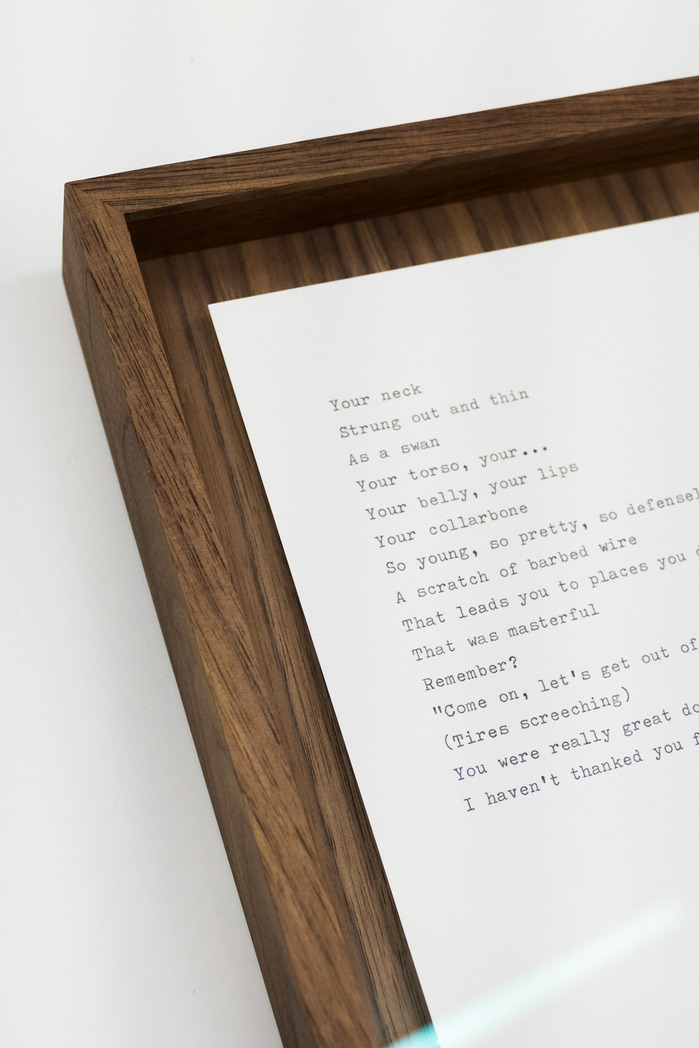 Your neck
Strung out and thin
As a swan
Your torso, your...
Your belly, your lips
Your collarbone
So young, so pretty, so
A scratch of barbed wire
That leads you to places you
That was masterful
Remember?
"Come on, let's get out of
(Tires screeching)
You were really great
I haven't thanked you